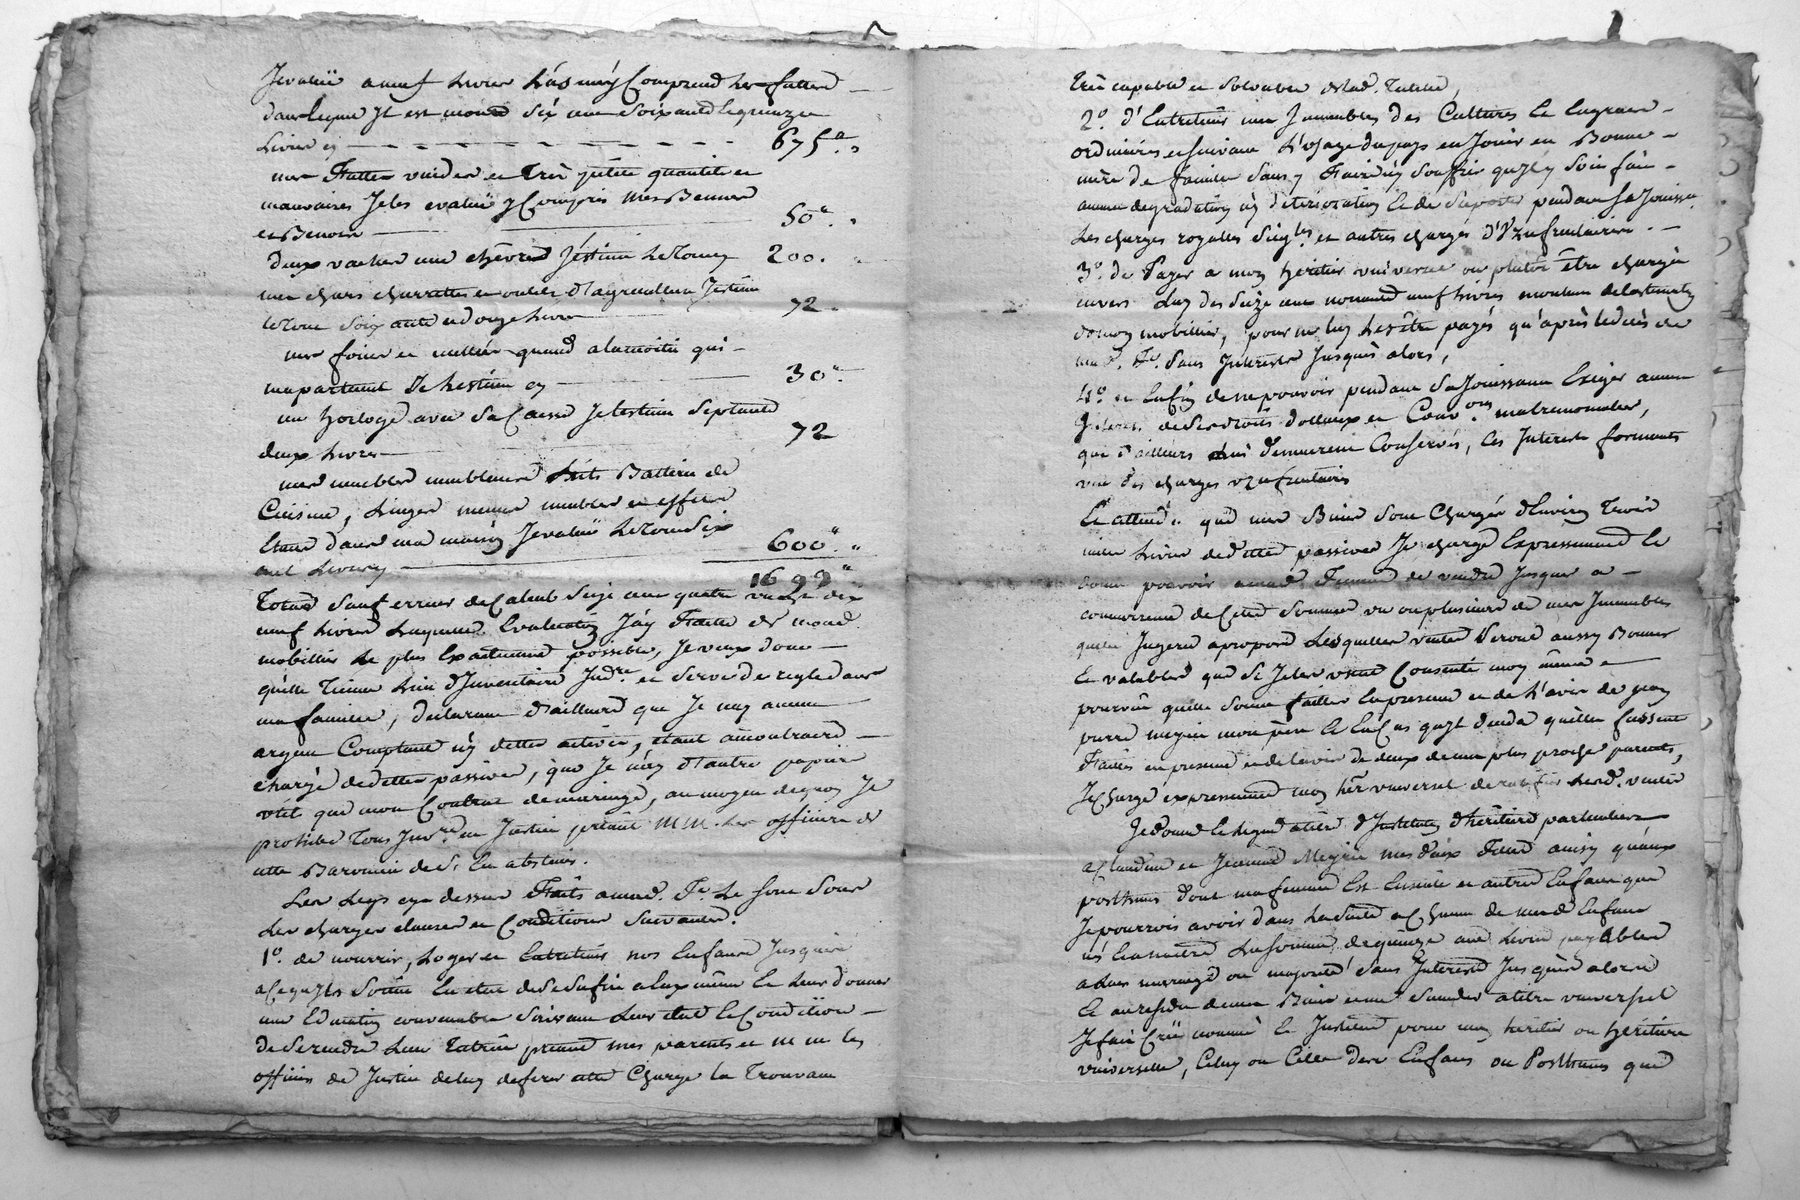 Jevalüe a neuf Livres L'ásnéé y Comprend les futtes
dans lequel Jl est monte Six cent Soixante & quinze
Livres cy 675.
mes Futtes vuides en très petite quantité et
mauvaises Je les evalüe y Compris Mes Bennes
et Benons 50.
deux vaches une chêvre J'éstime le Tout 200.
mes chars charrettes et outils d'agriculture J'estime
le Tout Soixante et douze Livres 72.
mes foins en quand a la moitié qui
m'apartient Je L'estime cy 30.
un horloge avec Sa Caisse Je l'estime Septante
deux Livres 72
mes meubles meublants Lits Batterie de
Cuisine, Linges menus meubles et effets
Etant dans ma maison J'evalüe le Tout Six
cent Livres cy 600.
1699
Total Sauf erreur de Calcul Seize cent quatre vingt dix
neuf Livres Laquelle Evaluation J'áy Faitte de mond.
mobillier le plus Exactement possible, Je veux donc
qu'elle Tienne Lieu d'Inventaire Judre. et Serve de regle dans
ma famille, declarant d'ailleurs que Je n'ay aucun
argent Comptant n'y dettes actives, etant aucontraire
chargé de dettes passives, que Je n'ay d'autre papier
util que mon Contrat de mariage, au moyen de quoy Je
prohibe Tous Invre. en Justice priant MM. les officiers de
cette Baronnie de S'En abstenir.
Les Legs cy dessus Faits amad. Fe. Le Sont Sous
Les charges clauses et Conditions Suivantes.
1º. de nourrir, Loger et Entretenir nos Enfants Jusques
a ce qu'Jls Soient En etat de Se Sufire a Eux même Et Leur donner
une Education convenable Suivant Leur état Et Condition
de Se rendre Leur Tutrice priant mes parents et MM les
officiers de Justice de luy deferer cette Charge la Trouvant
très capable et Solvable deLad. Tutelle,
2º. d'Entretenir mes Immeubles des Cultures Et Engrais
ordinaires et Suivant L'usage du pays en Jouir en Bonne
mère de famille Sans y Faire n'y Souffrir qu'Jl y Soit fait
aucune degradation n'y déterioration Et de Suporter pendant Sa Jouissce.
Les charges royalles Siegles. et autres charges d'Vzufruitaire.
3º. de Payer a mon héritier universel ou plutôt être chargée
envers Luy des Seize cent nonante neuf Livres montant de l'estimation
de mon mobillier, pour ne luy les être payés qu'après le decès de
mad. Fe. Sans Interets Jusques alors,
4º. et Enfin de ne pouvoir pendant Sa Jouissance Exiger aucun
Interets de Ses droits dottaux et Convons. matrimoniales,
que d'ailleurs Lui demeurent Conservés, les Interets formants
une des charges vzufruitaires
Et attendu que mes Biens Sont Chargés d'Environ Trois
mille Livres de dettes passives Je charge Expressement Et
donne pouvoir amad. Femme de vendre Jusques a
concurrence de Cette Somme un ou plusieurs de mes Immeubles
quelle Jugera apropos Lesquelles ventes Seront aussy Bonnes
Et valables que Si Je les avais Consenti moy même
pourvû quelle Soient faittes En presence et de L'avis de
pierre meynie mon père Et En Cas qu'Jl decèda quelles fussent
Faites en presence et de l'avis de deux de mes plus proches parents,
Je charge expressement mon her. universel de ratifier lesd. ventes
Je donne Et Legue a titre d'Institution d'héritière particulière
a Claudine et Jeanne Meynie mes deux filles ainsy qu'aux
posthumes dont ma femme Est Enceinte et autres Enfans que
Je pourrois avoir dans La Suite a Chacun de mesd. Enfans
nés Et a naitre La Somme de quinze cent Livres payables
a Leur mariage ou majorité Sans Interets Jusques alors
Et au residu de mes Biens a titre universel
Je fais Crée nomme Et Institue pour mon héritier ou héritière
universelle, Celuy ou Celle de Enfans ou Posthumes que